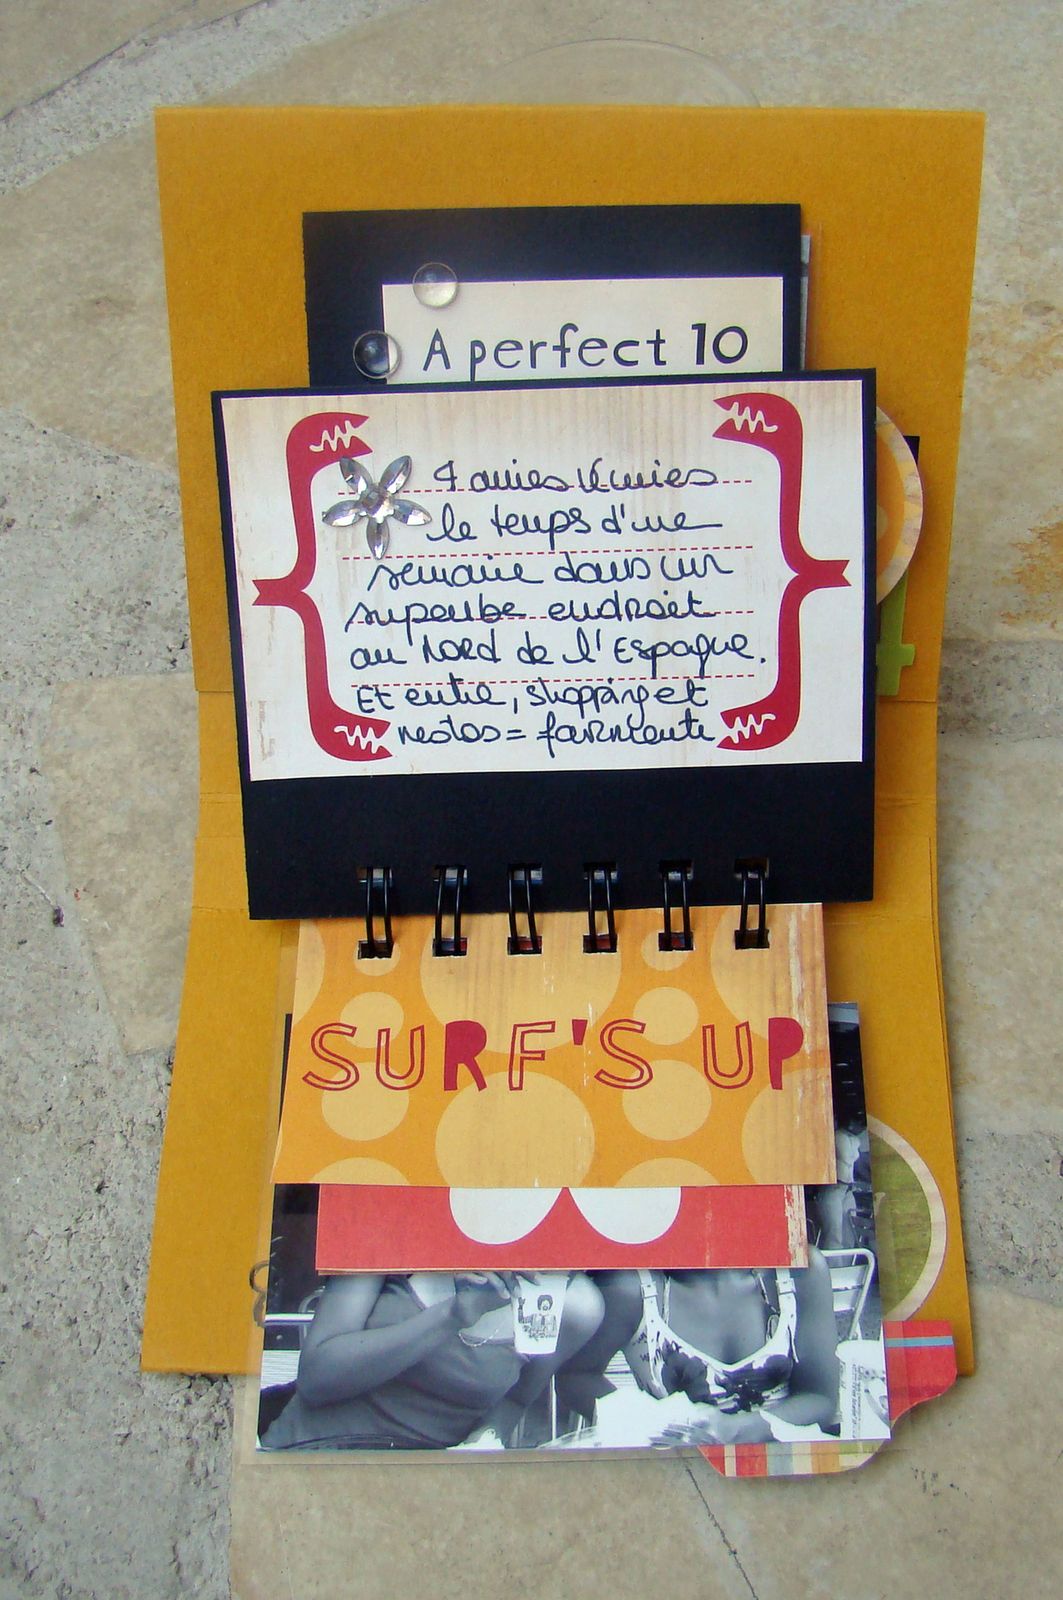 A perfect 10
4 amies réunies
le temps d'une
semaine dans un
superbe endroit
au Nord de l'Espagne.
Et entre, shopping et
restos = farniente
SURF'S UP